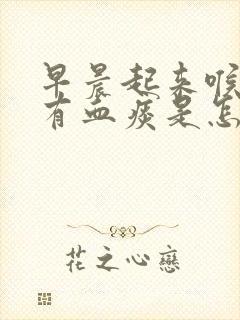 早晨起来喉
有血痰是怎
花之心戀